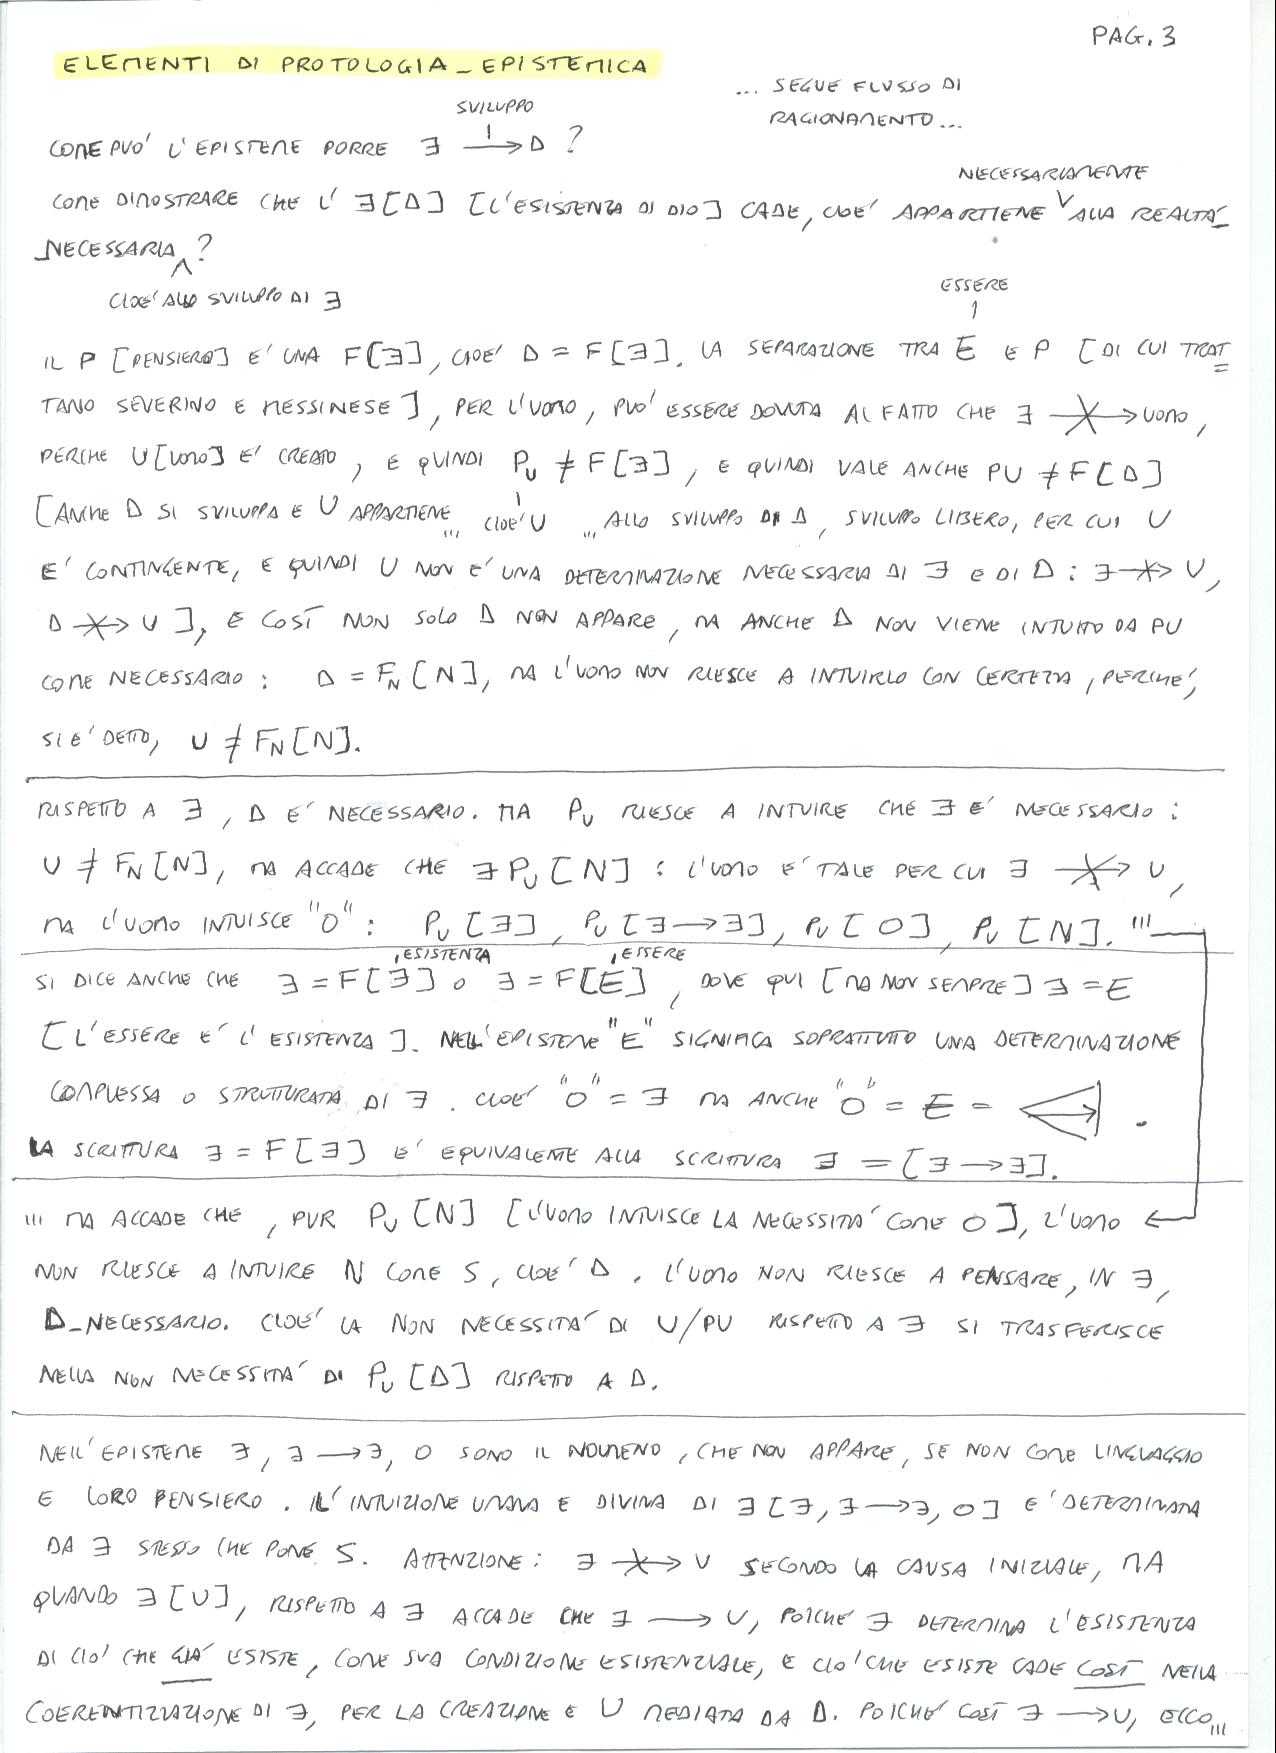 PAG. 3
ELEMENTI DI PROTOLOGIA_EPISTEMICA
... SEGUE FLUSSO DI
RAGIONAMENTO...
SVILUPPO
COME PUO' L'EPISTEME PORRE ∃ → D ?
NECESSARIAMENTE
COME DIMOSTRARE CHE L' ∃[D] [L'ESISTENZA DI DIO] CADE, CIOE' APPARTIENE ∨ ALLA REALTA'_
_NECESSARIA ∧ ?
CIOE' ALLO SVILUPPO DI ∃
ESSERE
IL P [PENSIERO] E' UNA F[∃], CIOE' D = F[∃]. LA SEPARAZIONE TRA E E P [DI CUI TRAT=
TANO SEVERINO E MESSINESE], PER L'UOMO, PUO' ESSERE DOVUTA AL FATTO CHE ∃ -X-> UOMO,
PERCHE U[UOMO] E' CREATO, E QUINDI PU ≠ F[∃], E QUINDI VALE ANCHE PU ≠ F[D]
[ANCHE D SI SVILUPPA E U APPARTIENE ... CIOE' U ... ALLO SVILUPPO DI D, SVILUPPO LIBERO, PER CUI U
E' CONTINGENTE, E QUINDI U NON E' UNA DETERMINAZIONE NECESSARIA DI ∃ E DI D : ∃ -X-> U,
D -X-> U ], E COSI NON SOLO D NON APPARE, MA ANCHE D NON VIENE INTUITO DA PU
COME NECESSARIO : D = FN [N], MA L'UOMO NON RIESCE A INTUIRLO CON CERTEZZA, PERCHE',
SI E' DETTO, U ≠ FN [N].
RISPETTO A ∃, D E' NECESSARIO. MA PU RIESCE A INTUIRE CHE ∃ E' NECESSARIO :
U ≠ FN [N], MA ACCADE CHE ∃ PU [N] : L'UOMO E' TALE PER CUI ∃ -X-> U,
MA L'UOMO INTUISCE "O" : PU [∃], PU [∃ → ∃], PU [O], PU [N]. '''
ESISTENZA ESSERE
SI DICE ANCHE CHE ∃ = F[∃] O ∃ = F[E], DOVE QUI [MA NON SEMPRE] ∃ = E
[L'ESSERE E' L'ESISTENZA]. NELL'EPISTEME "E" SIGNIFICA SOPRATTUTTO UNA DETERMINAZIONE
COMPLESSA O STRUTTURATA DI ∃. CIOE' "O" = ∃ MA ANCHE "O" = E = .
LA SCRITTURA ∃ = F[∃] E' EQUIVALENTE ALLA SCRITTURA ∃ = [∃ → ∃].
''' MA ACCADE CHE, PUR PU [N] [L'UOMO INTUISCE LA NECESSITA' COME O], L'UOMO
NON RIESCE A INTUIRE N COME S, CIOE' D. L'UOMO NON RIESCE A PENSARE, IN ∃,
D_NECESSARIO. CIOE' LA NON NECESSITA' DI U/PU RISPETTO A ∃ SI TRASFERISCE
NELLA NON NECESSITA' DI PU [D] RISPETTO A D.
NELL'EPISTEME ∃, ∃ → ∃, O SONO IL NOUMENO, CHE NON APPARE, SE NON COME LINGUAGGIO
E LORO PENSIERO. L'INTUIZIONE UMANA E DIVINA DI ∃ [∃, ∃ → ∃, O] E' DETERMINATA
DA ∃ STESSO CHE PONE S. ATTENZIONE : ∃ -X-> U SECONDO LA CAUSA INIZIALE, MA
QUANDO ∃ [U], RISPETTO A ∃ ACCADE CHE ∃ → U, POICHE' ∃ DETERMINA L'ESISTENZA
DI CIO' CHE GIA' ESISTE, COME SUA CONDIZIONE ESISTENZIALE, E CIO' CHE ESISTE CADE COSI NELLA
COERENTIZZAZIONE DI ∃, PER LA CREAZIONE E U MEDIATA DA D. POICHE' COSI ∃ → U, ECCO '''